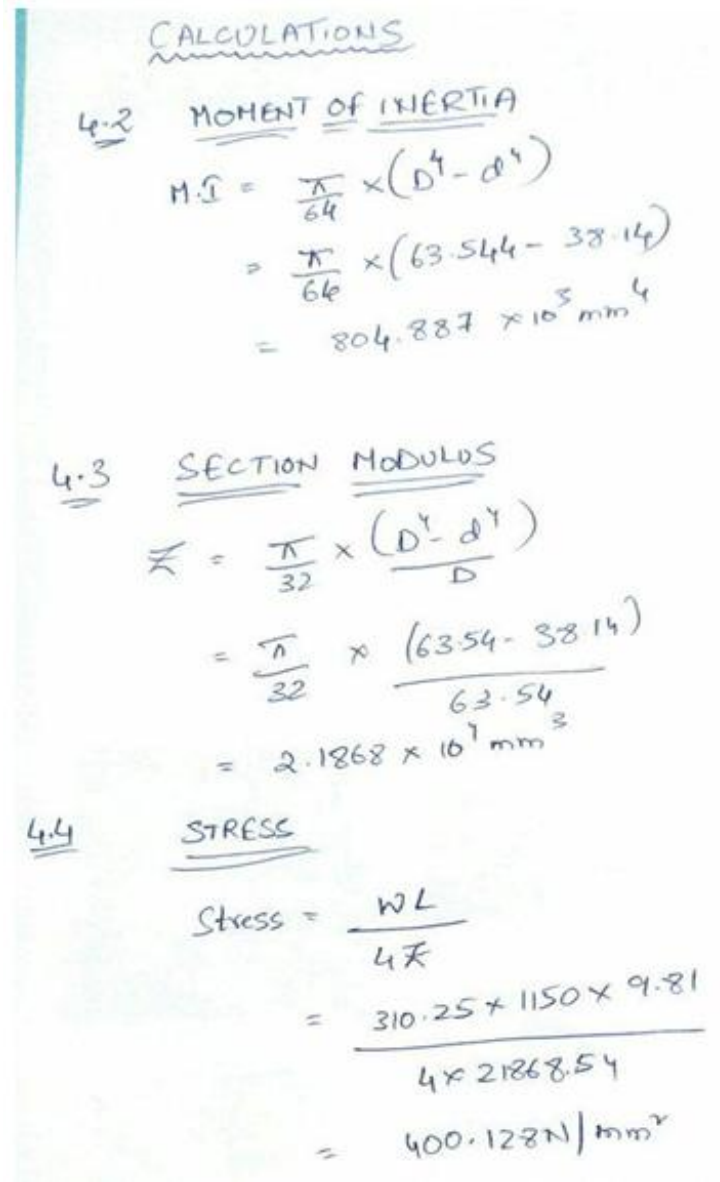 CALCULATIONS
4.2 MOMENT OF INERTIA
M.I = π/64 × (D⁴ - d⁴)
= π/64 × (63.544 - 38.14)
= 804.887 × 10³ mm⁴
4.3 SECTION MODULUS
Z = π/32 × (D⁴ - d⁴)/D
= π/32 × (63.54 - 38.14)/63.54
= 2.1868 × 10⁴ mm³
4.4 STRESS
Stress = WL/4Z
= 310.25 × 1150 × 9.81/4 × 21868.54
= 400.128N/mm²